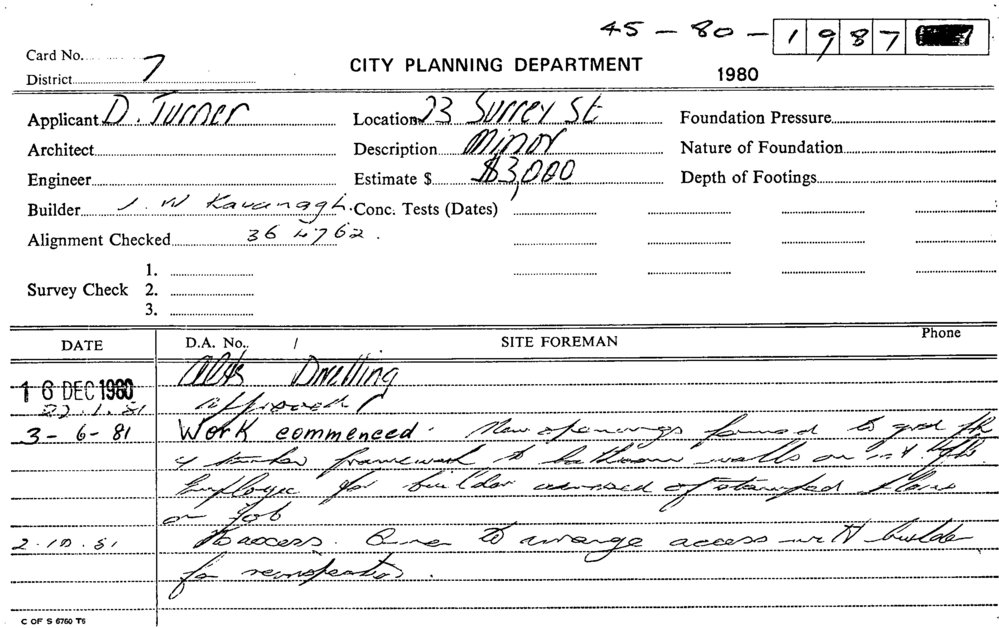 45 - 80 - 1987
Card No. 7
District
CITY PLANNING DEPARTMENT
1980
Applicant D. Turner
Location 73 Surrey St
Foundation Pressure
Architect
Description Minor
Nature of Foundation
Engineer
Estimate $ $3,000
Depth of Footings
Builder J. W Kavanagh.
Conc. Tests (Dates)
Alignment Checked 36 4762.
1.
Survey Check 2.
3.
DATE D.A. No. / SITE FOREMAN Phone
16 DEC 1980 Alts Dwelling
22.1.81 Approved
3-6-81 Work commenced. New openings formed to grd
& timber framework to bathroom walls on
Employee for builder advised of stamped plans
on Job
2.10.81 No access. Owner to arrange access with builder
for reinspection.
C OF S 6760 T6